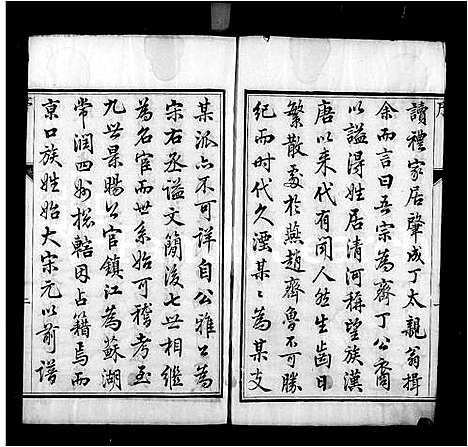 序
讀禮家居肇成丁太親翁揖
余而言曰吾宗為齊丁公裔
以謚得姓居清河稱望族漢
唐以来代有聞人然生齒日
繁散處於燕趙齊魯不可勝
紀而时代久湮某〻為某支
某派亦不可詳自公雅公為
宋右丞谥文簡後七世相繼
為名宦而世系始可稽考至
九世景暘公官鎮江為蘇湖
常润四州總轄因占籍焉而
京口族姓始大宋元以前譜